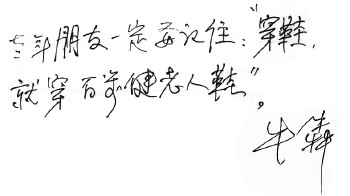 老年朋友一定要记住：“穿鞋，
就穿百步健老人鞋”。
牛犇